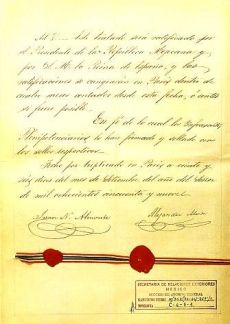 este tratado será ratificado por
el Presidente de la República Mexicana y
por S. M. la Reina de España, y las
ratificaciones se cangearán en París dentro de
cuatro meses contados desde esta fecha, ó antes
si fuere posible.
En fé de lo cual los infrascritos
Plenipotenciarios lo han firmado y sellado con
los sellos respectivos.
Hecho por triplicado en París á veinte y
seis dias del mes de Setiembre del año del Señor
de mil ochocientos cincuenta y nueve.
Juan N. Almonte
Alejandro Mon
SECRETARIA DE RELACIONES EXTERIORES
MEXICO